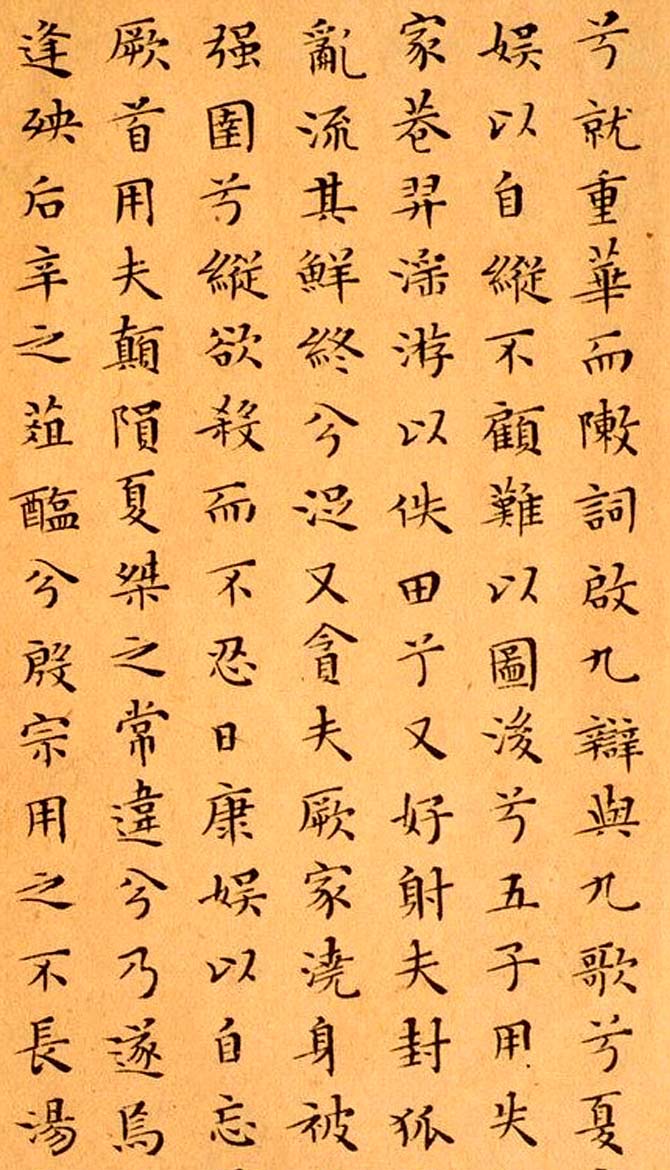 兮就重華而敶詞啟九辯與九歌兮夏
娱以自縱不顧難以圖後兮五子用失
家巷羿滛游以佚田兮又好射夫封狐
亂流其鮮終兮浞又貪夫厥家澆身被
强圉兮縱欲殺而不忍日康娱以自忘
厥首用夫顛隕夏桀之常違兮乃遂焉
逢殃后辛之菹醢兮殷宗用之不長湯